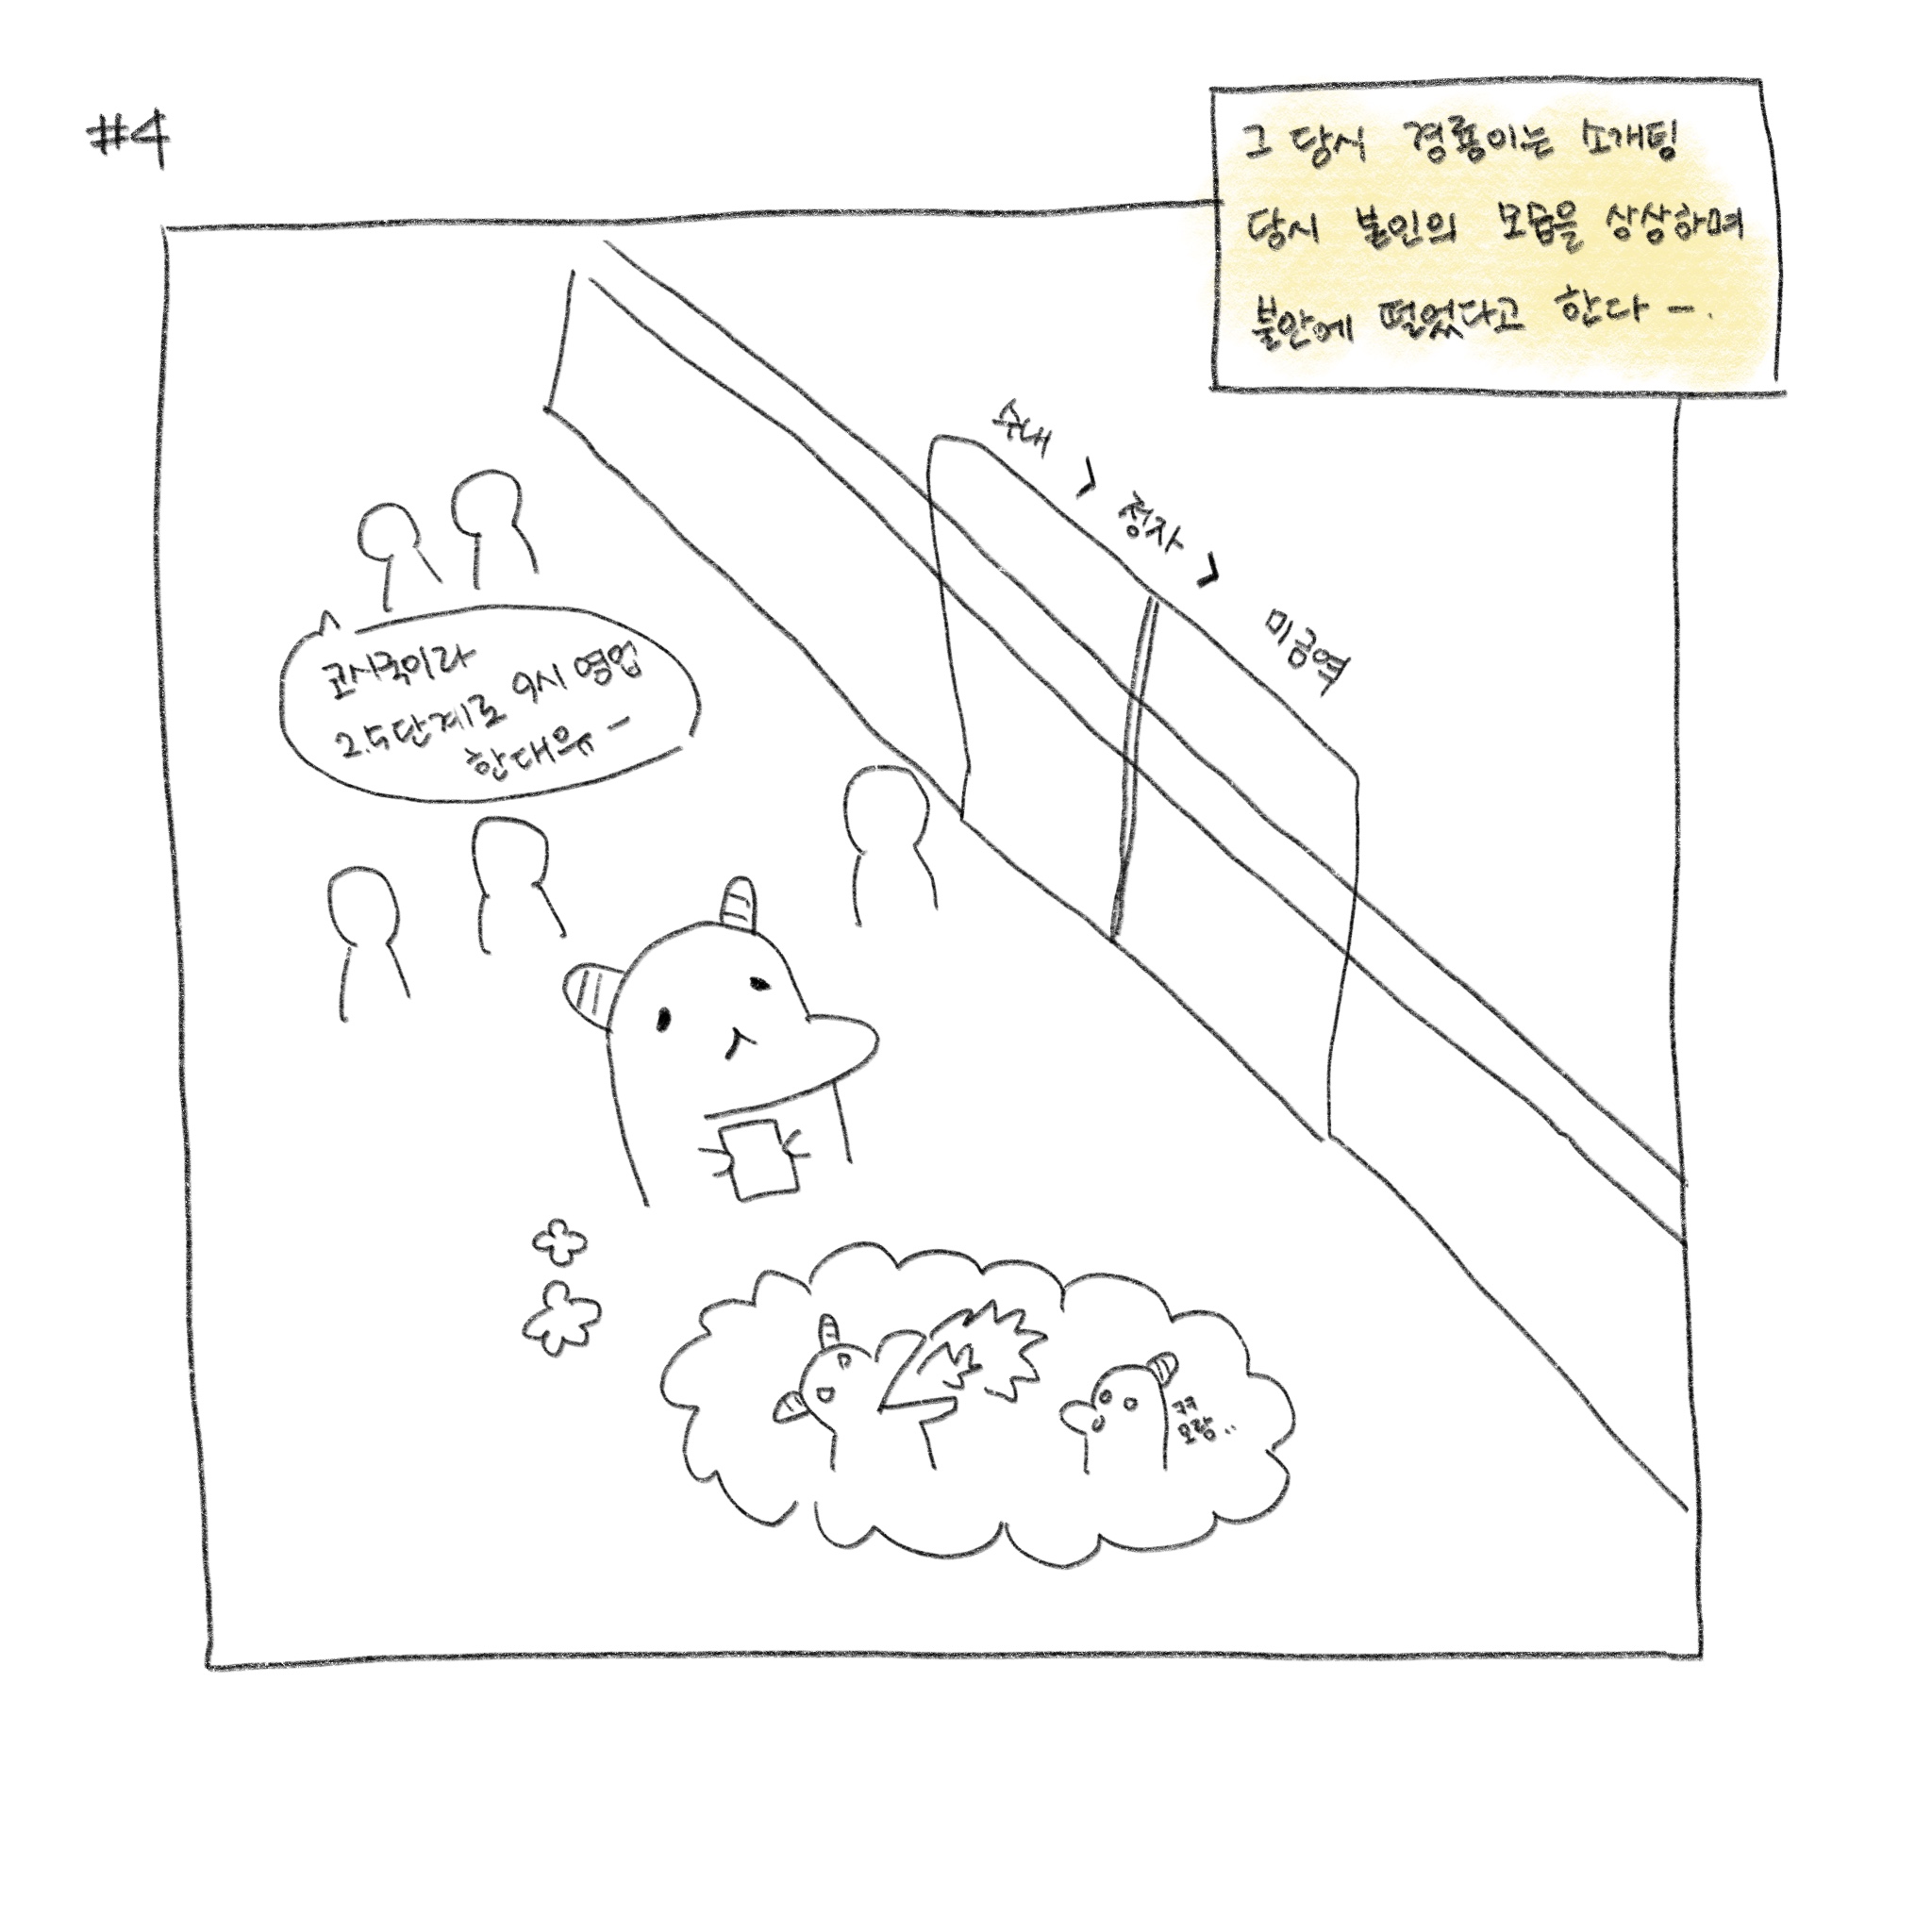 #4
그 당시 경룡이는 소개팅
당시 본인의 모습을 상상하며
불안에 떨었다고 한다 -.
수내 > 정자 > 미금역
코시국이라
2.5단계로 9시 영업
한대유ㅠ -
ㅋㅋ